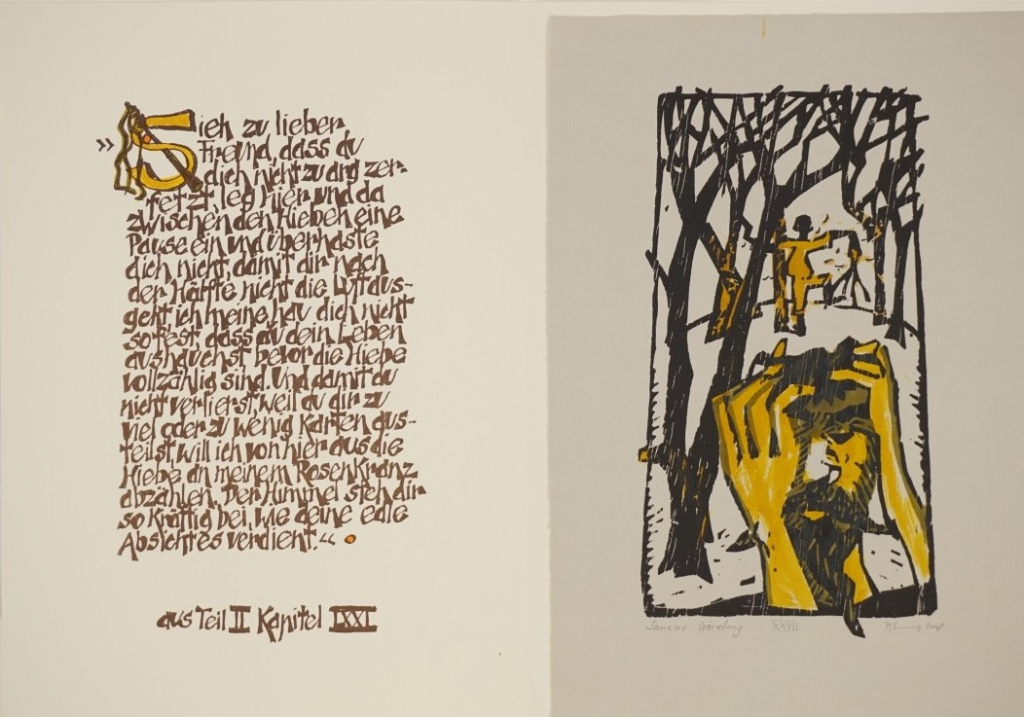 »Sieh zu lieber
Freund, dass du
dich nicht zu arg zer-
fetzt, leg hier und da
zwischen den Hieben eine
Pause ein und überhaste
dich nicht, damit dir nach
der Hälfte nicht die Luft aus-
geht ich meine, hau dich nicht
so fest, dass du dein Leben
aushauchst bevor die Hiebe
vollzählig sind. Und damit du
nicht verlierst, weil du dir zu
viel oder zu wenig Karten aus-
teilst, will ich von hier aus die
Hiebe an meinem Rosenkranz
abzählen. Der Himmel steh dir
so kräftig bei, wie deine edle
Absicht es verdient.«
aus Teil II Kapitel LXXI
XXVII